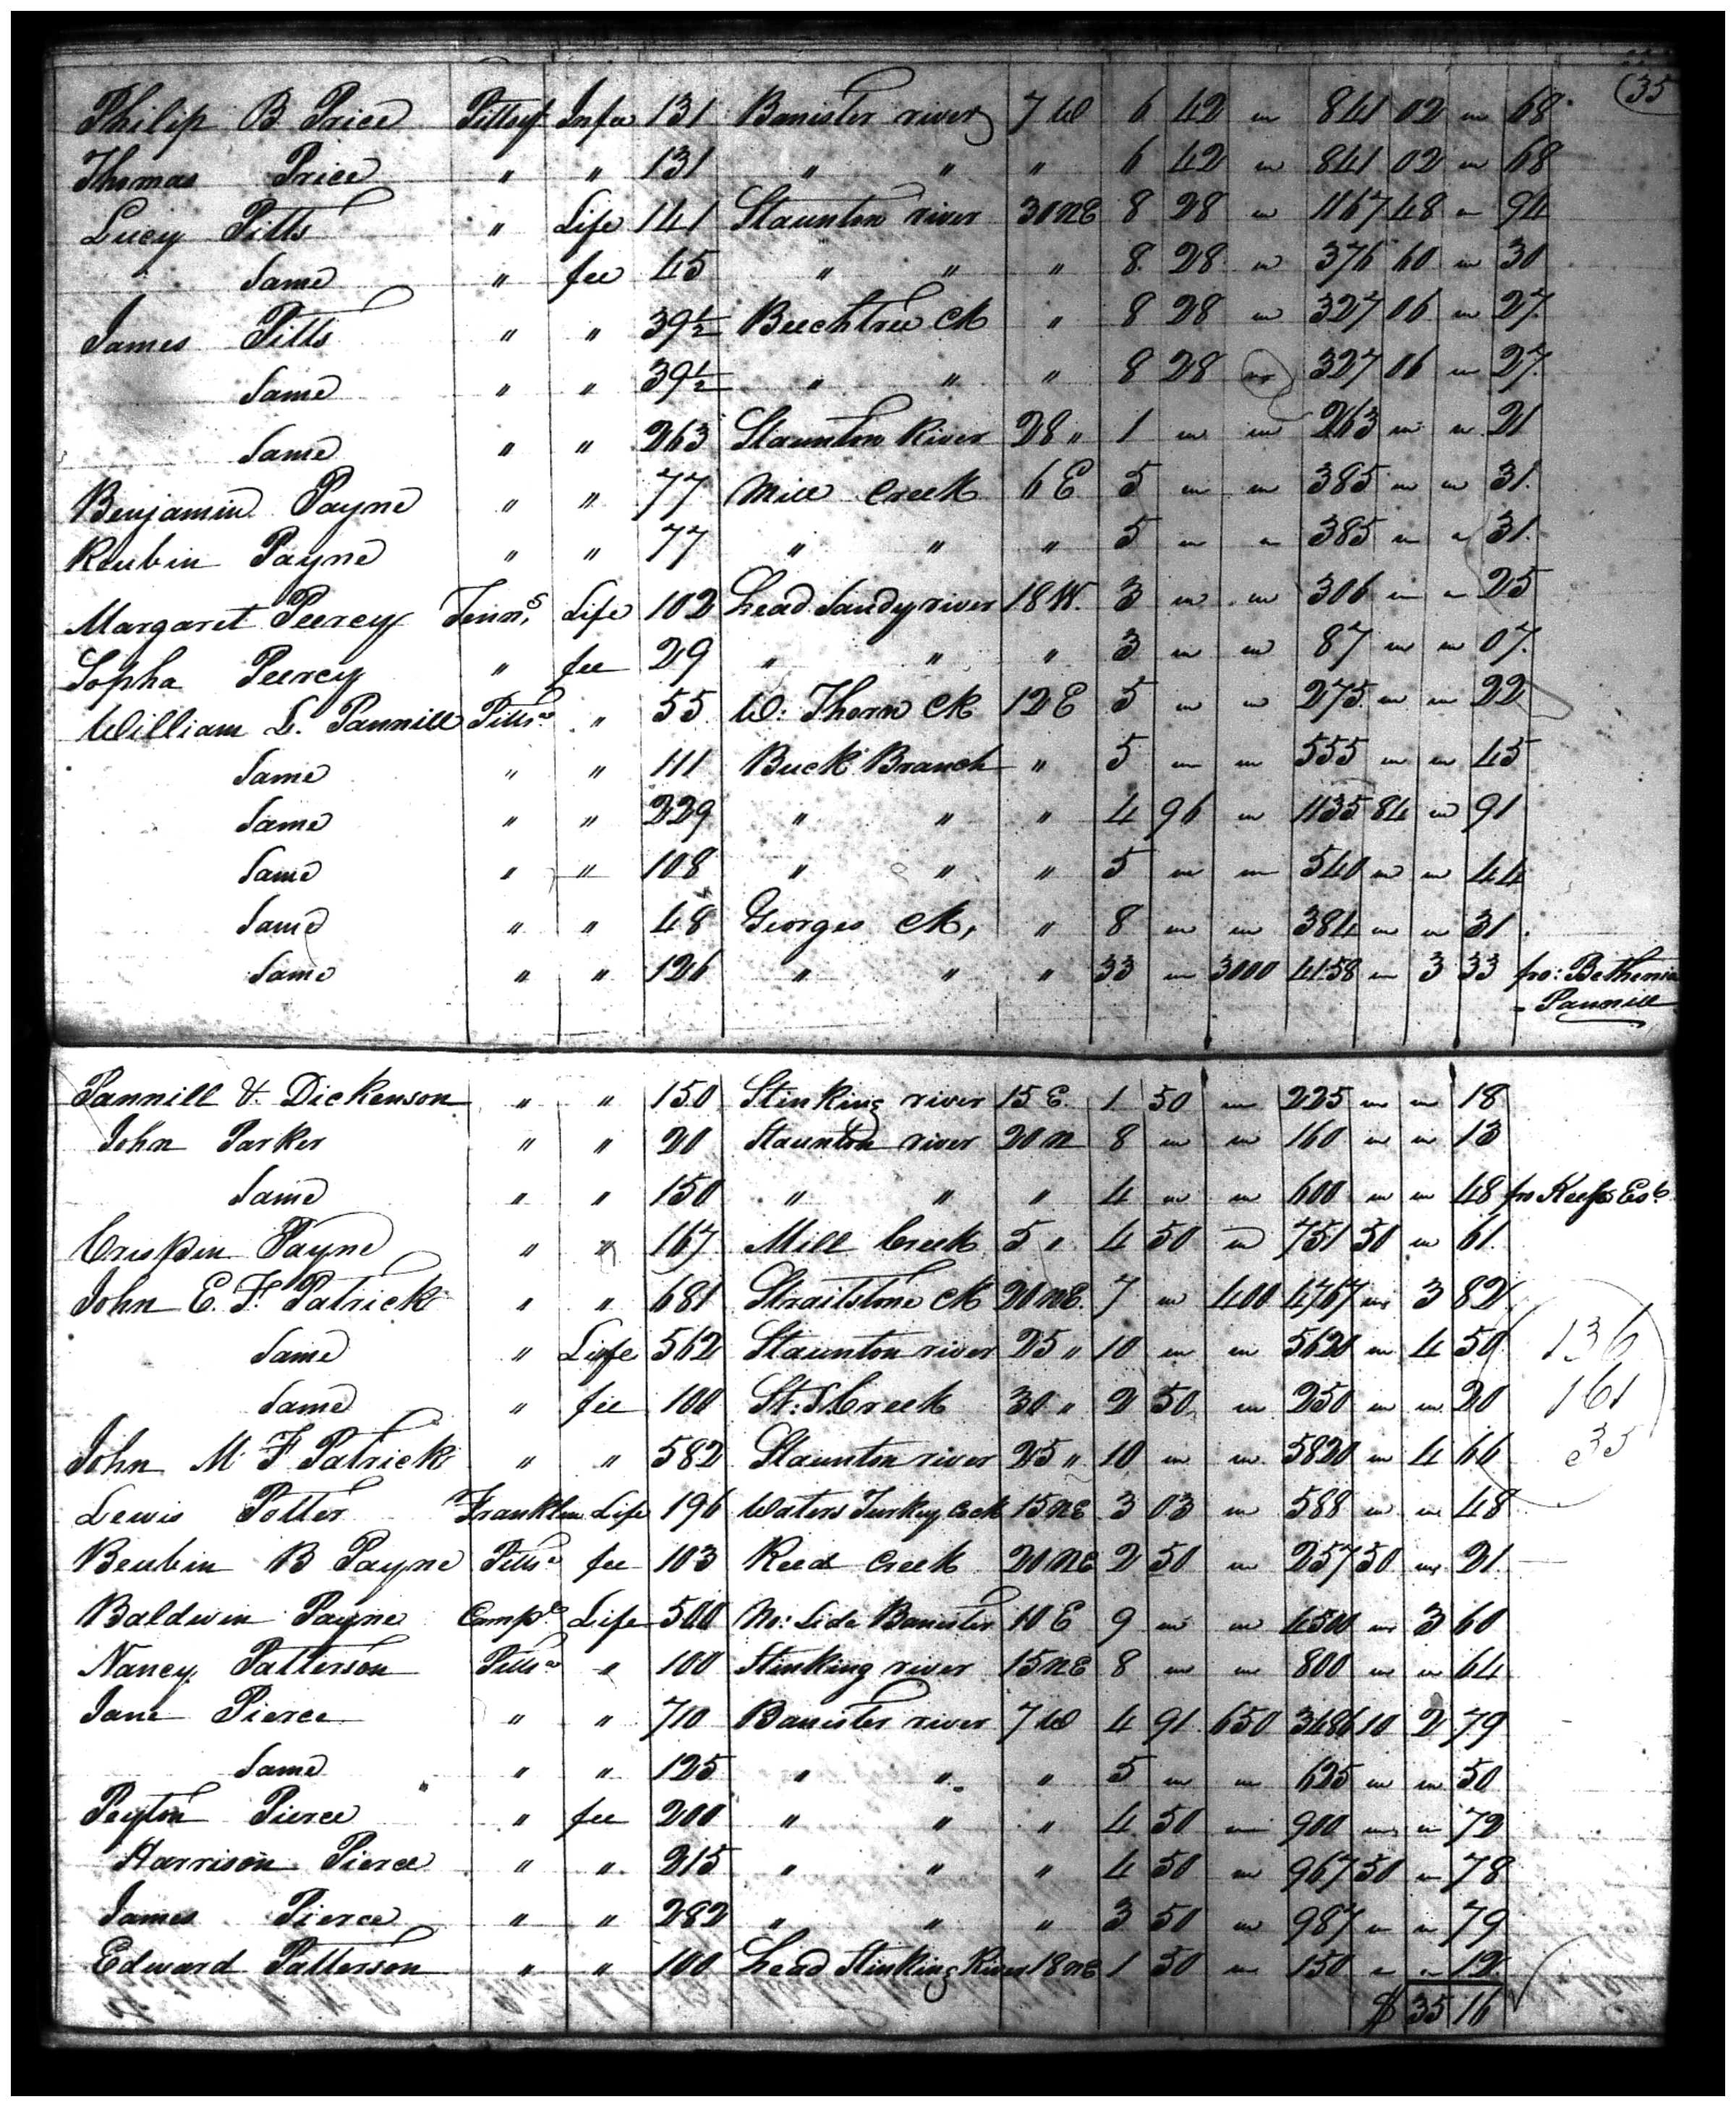 35
Philip B Price Pittsy Infee 131 Banister river 7 W 6 42 " 841 02 " 68
Thomas Price " " 131 " " " 6 42 " 841 02 " 68
Lucy Pitts " Life 141 Staunton river 30 NE 8 28 " 1167 48 " 94
Same " fee 45 " " " 8 28 " 376 60 " 30
James Pitts " " 39½ Beechtree Ck " 8 28 " 327 06 " 27
Same " " 39½ " " " 8 28 " 327 06 " 27
Same " " 263 Staunton River 28 " 1 " " 263 " " 21
Benjamin Payne " " 77 Mill Creek 6 E 5 " " 385 " " 31
Reubin Payne " " 77 " " " 5 " " 385 " " 31
Margaret Peercy Tenns Life 102 head Sandy river 18 W. 3 " " 306 " " 25
Sopha Peercy " fee 29 " " " 3 " " 87 " " 07
William L. Pannill Pittsa " 55 W: Thorn Ck 12 E 5 " " 275 " " 22
Same " " 111 Buck Branch " 5 " " 555 " " 45
Same " " 229 " " " 4 96 " 1135 84 " 91
Same " " 108 " " " 5 " " 540 " " 44
Same " " 48 Georges Ck, " 8 " " 384 " " 31
Same " " 126 " " " 33 " 3000 4158 " 3 33 fro: Bethenia
Pannill
Pannill & Dickenson " " 150 Stinking river 15 E. 1 50 " 225 " " 18
John Parker " " 20 Staunton river 20 N 8 " " 160 " " 13
Same " " 150 " " " 4 " " 600 " " 48 fro
Crispen Payne " " 167 Mill Creek 5 " 4 50 " 751 50 " 61
John E. F. Patrick " " 681 Straitstone Ck 20 NE. 7 " 400 4767 " 3 82
Same " Life 562 Staunton river 25 " 10 " " 5620 " 4 50 136
Same " fee 100 St: S Creek 30 " 2 50 " 250 " " 20 161
John M F Patrick " " 582 Staunton river 25 " 10 " " 5820 " 4 66 35
Lewis Potter Franklin Life 196 Waters Turkey Cock 15 NE 3 03 " 588 " " 48
Reubin B Payne Pittsa fee 103 Reed Creek 20 NE 2 50 " 257 50 " 21
Baldwin Payne Camp Life 500 No: Side Banister 10 E 9 " " 4500 " 3 60
Nancy Patterson Pittsa " 100 Stinking river 15 NE 8 " " 800 " " 64
Jane Pierce " " 710 Banister river 7 W 4 91 650 3486 10 2 79
Same " " 125 " " " 5 " " 625 " " 50
Peyton Pierce " fee 200 " " " 4 50 " 900 " " 72
Harrison Pierce " " 215 " " " 4 50 " 967 50 " 78
James Pierce " " 282 " " " 3 50 " 987 " " 79
Edward Patterson " " 100 head Stinking River 18 NE 1 50 " 150 " " 12
$ 35 16